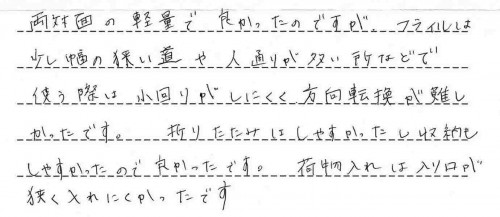 両対面の軽量で良かったのですが、フライルは
少し幅の狭い道や人通りが多い所などで
使う際は小回りがしにくく方向転換が難し
かったです。 折りたたみはしやすかったし収納も
しやすかったので良かったです。 荷物入れは入り口が
狭く入れにくかったです